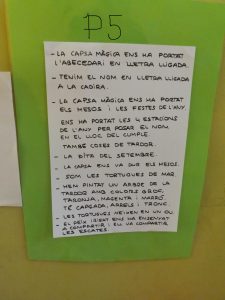 P5
- LA CAPSA MÀGICA ENS HA PORTAT
L'ABECEDARI EN LLETRA LLIGADA.
- TENIM EL NOM EN LLETRA LLIGADA
A LA CADIRA.
- LA CAPSA MÀGICA ENS HA PORTAT
ELS MESOS I LES FESTES DE L'ANY.
ENS HA PORTAT LES 4 ESTACIONS
DE L'ANY PER POSAR EL NOM
EN EL LLOC DEL CUMPLE.
TAMBÉ COSES DE TARDOR.
- LA DITA DEL SETEMBRE.
- LA CAPSA ENS VA DUR ELS MESOS.
- SOM LES TORTUGUES DE MAR.
- HEM PINTAT UN ARBRE DE LA
TARDOR AMB COLORS GROC,
TARONJA, MAGENTA I MARRÓ.
TÉ CAPÇADA, ARRELS I TRONC.
- LES TORTUGUES NEIXEN EN UN OU.
- EL PEIX IRISAT ENS HA ENSENYAT
A COMPARTIR I ELL VA COMPARTIR
LES ESCATES.